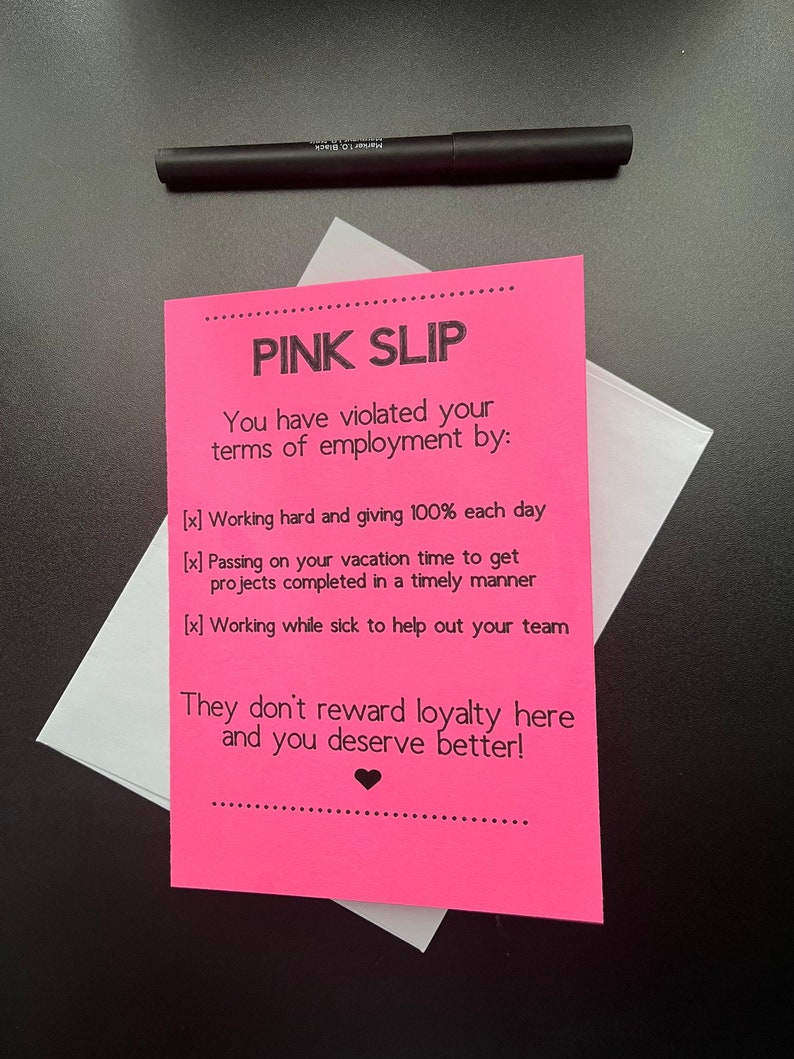 Marker 1.0, Black
PINK SLIP
You have violated your
terms of employment by:
[x] Working hard and giving 100% each day
[x] Passing on your vacation time to get
projects completed in a timely manner
[x] Working while sick to help out your team
They don't reward loyalty here
and you deserve better!